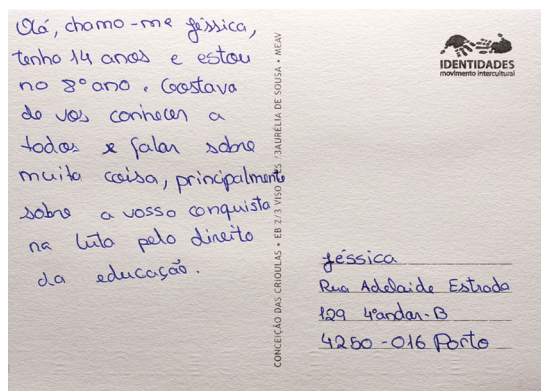 Olá, chamo-me Jéssica,
tenho 14 anos e estou
no 8º ano. Gostava
de vos conhecer a
todos e falar sobre
muita coisa, principalmente
sobre a vosso conquista
na luta pelo direito
da educação.
CONCEIÇÃO DAS CRIOULAS • EB 2/3 VISO AURÉLIA DE SOUSA • MEAV
IDENTIDADES
movimento intercultural
Jéssica
Rua Adelaide Estrada
129 4ºandar-B
4250-016 Porto